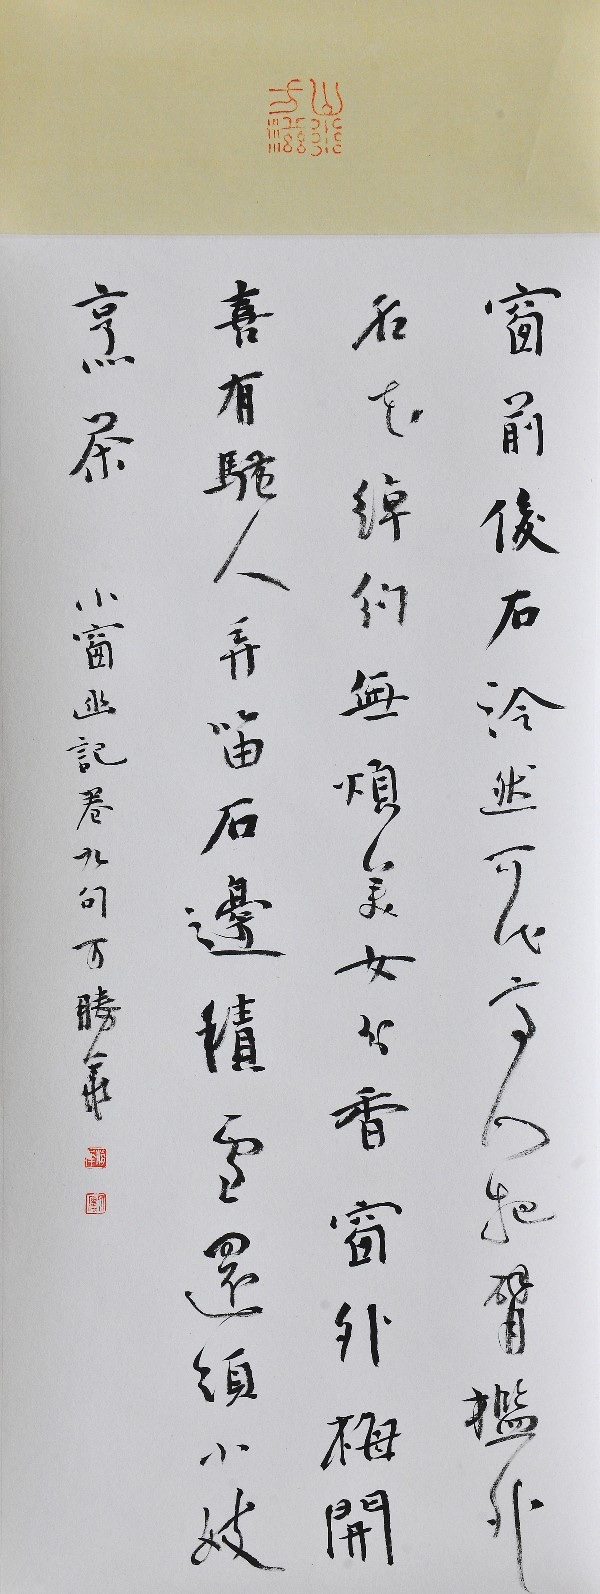 窗前俊石泠然可代高人把臂檻外
名花綽約無煩美女分香窗外梅開
喜有騷人弄笛石邊積雪還須小妓
烹茶
小窗幽記卷九句